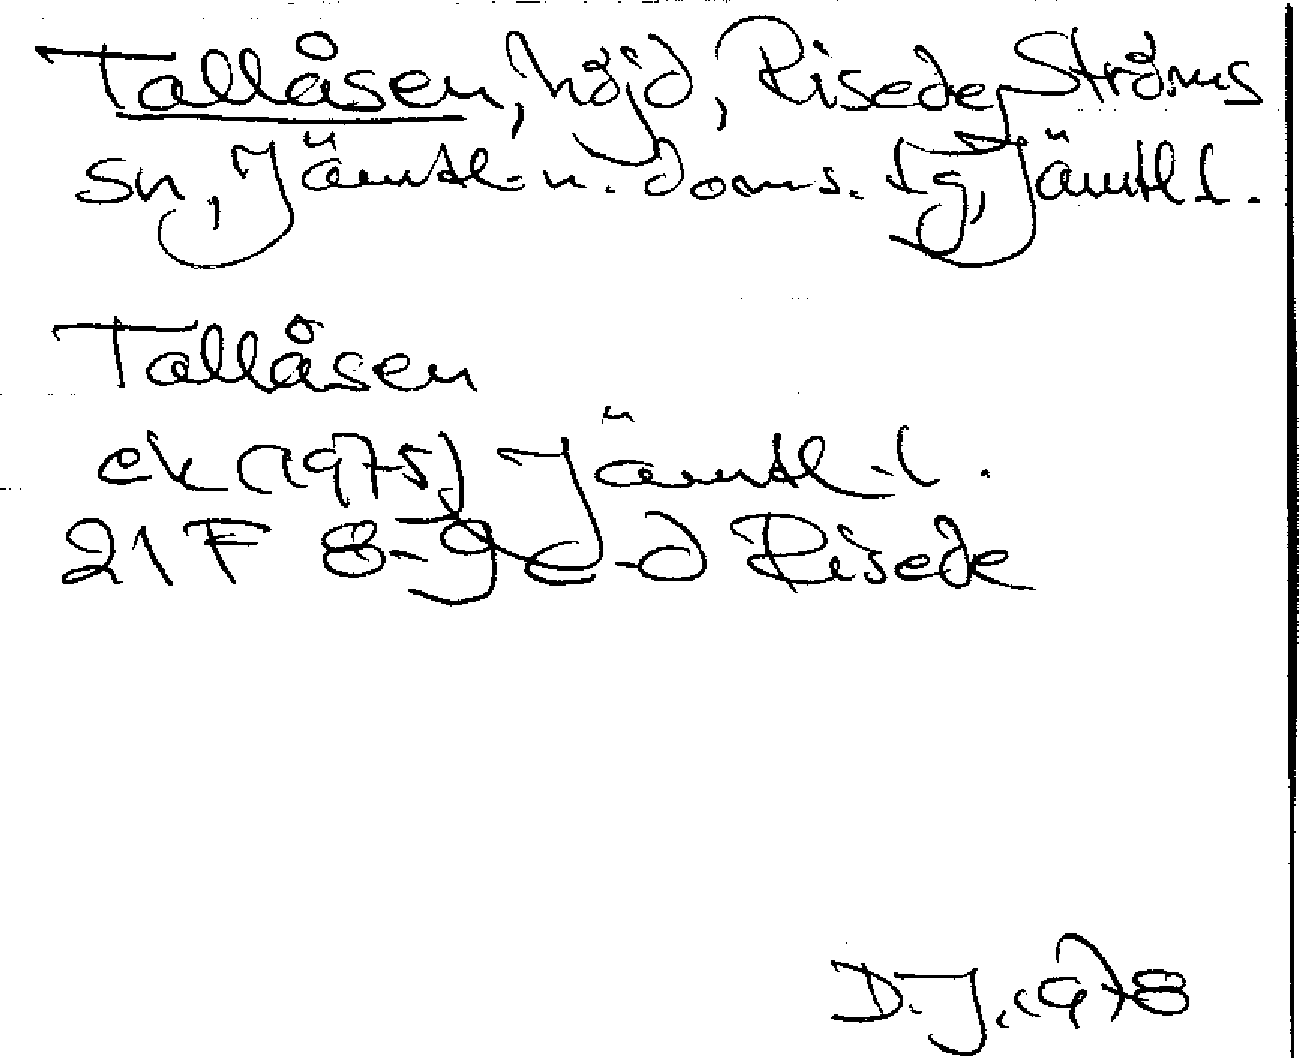 Tallåsen, höjd, Risede, Ströms
sn, Jämtl. n. doms. tg, Jämtl l.
Tallåsen
ek (1975) Jämtl. l.
21 F 8-9 c-d Risede
D. J. 1978